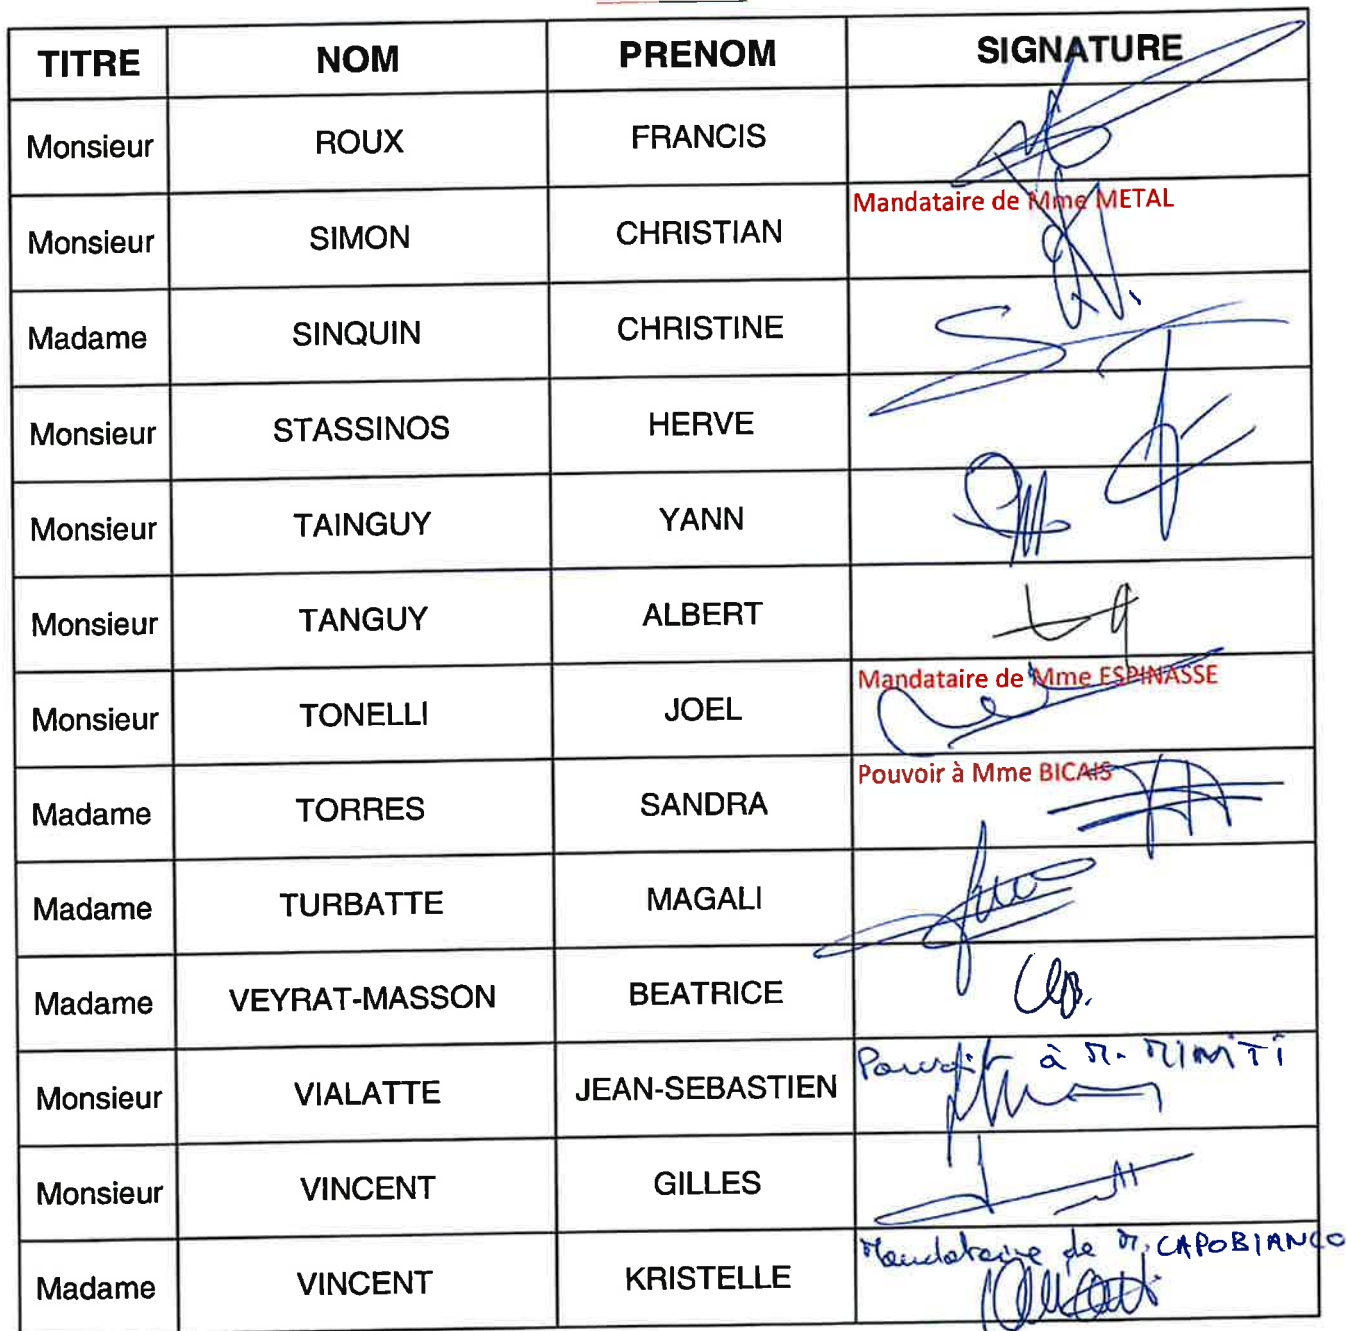 TITRE NOM PRENOM SIGNATURE
Monsieur ROUX FRANCIS
Monsieur SIMON CHRISTIAN Mandataire de Mme METAL
Madame SINQUIN CHRISTINE
Monsieur STASSINOS HERVE
Monsieur TAINGUY YANN
Monsieur TANGUY ALBERT
Monsieur TONELLI JOEL Mandataire de Mme ESPINASSE
Madame TORRES SANDRA Pouvoir à Mme BICAIS
Madame TURBATTE MAGALI
Madame VEYRAT-MASSON BEATRICE
Monsieur VIALATTE JEAN-SEBASTIEN Pouvoir à M. MIMITI
Monsieur VINCENT GILLES
Madame VINCENT KRISTELLE Mandataire de M. CAPOBIANCO